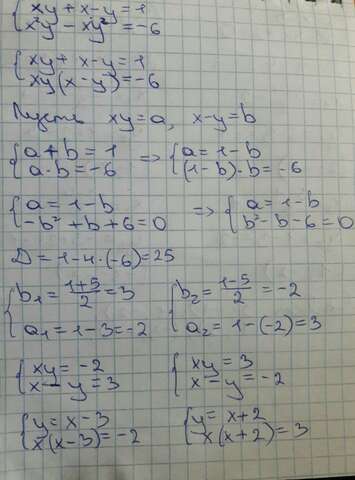 {xy + x - y = 1
{x²y - xy² = -6
{xy + x - y = 1
{xy(x - y) = -6
Пусть xy = a, x - y = b
{a + b = 1 => {a = 1 - b
{a · b = -6 {(1 - b) · b = -6
{a = 1 - b => {a = 1 - b
{-b² + b + 6 = 0 {b² - b - 6 = 0
D = 1 - 4 · (-6) = 25
{b₁ = (1+5)/2 = 3 {b₂ = (1-5)/2 = -2
{a₁ = 1 - 3 = -2 {a₂ = 1 - (-2) = 3
{xy = -2 {xy = 3
{x - y = 3 {x - y = -2
{y = x - 3 {y = x + 2
{x(x - 3) = -2 {x(x + 2) = 3